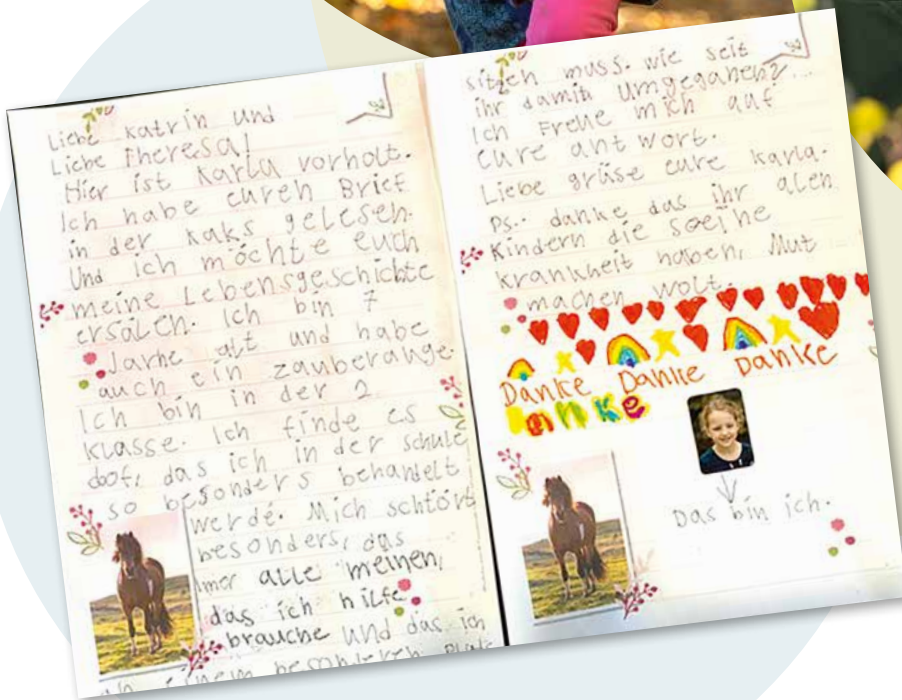 Liebe Katrin und
Liebe Theresa!
Hier ist Karla vorholt.
Ich habe euren Brief
in der kaks gelesen.
Und ich möchte euch
meine Lebensgeschichte
ersälen. Ich bin 7
Jarhe alt und habe
auch ein zauberauge.
Ich bin in der 2.
klasse. Ich finde es
doof, das ich in der schule
so besonders behandelt
werde. Mich schtört
besonders, das
imer alle meinen,
das ich hilfe
brauche und das ich
an einem besonderen Platz
sitzen muss. wie seit
ihr damit umgeganen?...
Ich Freue mich auf
eure antwort.
Liebe grüse eure Karla.
Ps.. danke das ihr alen
Kindern die so eine
krankheit haben, Mut
machen wolt.
Danke Danke Danke
Danke
Das bin ich.